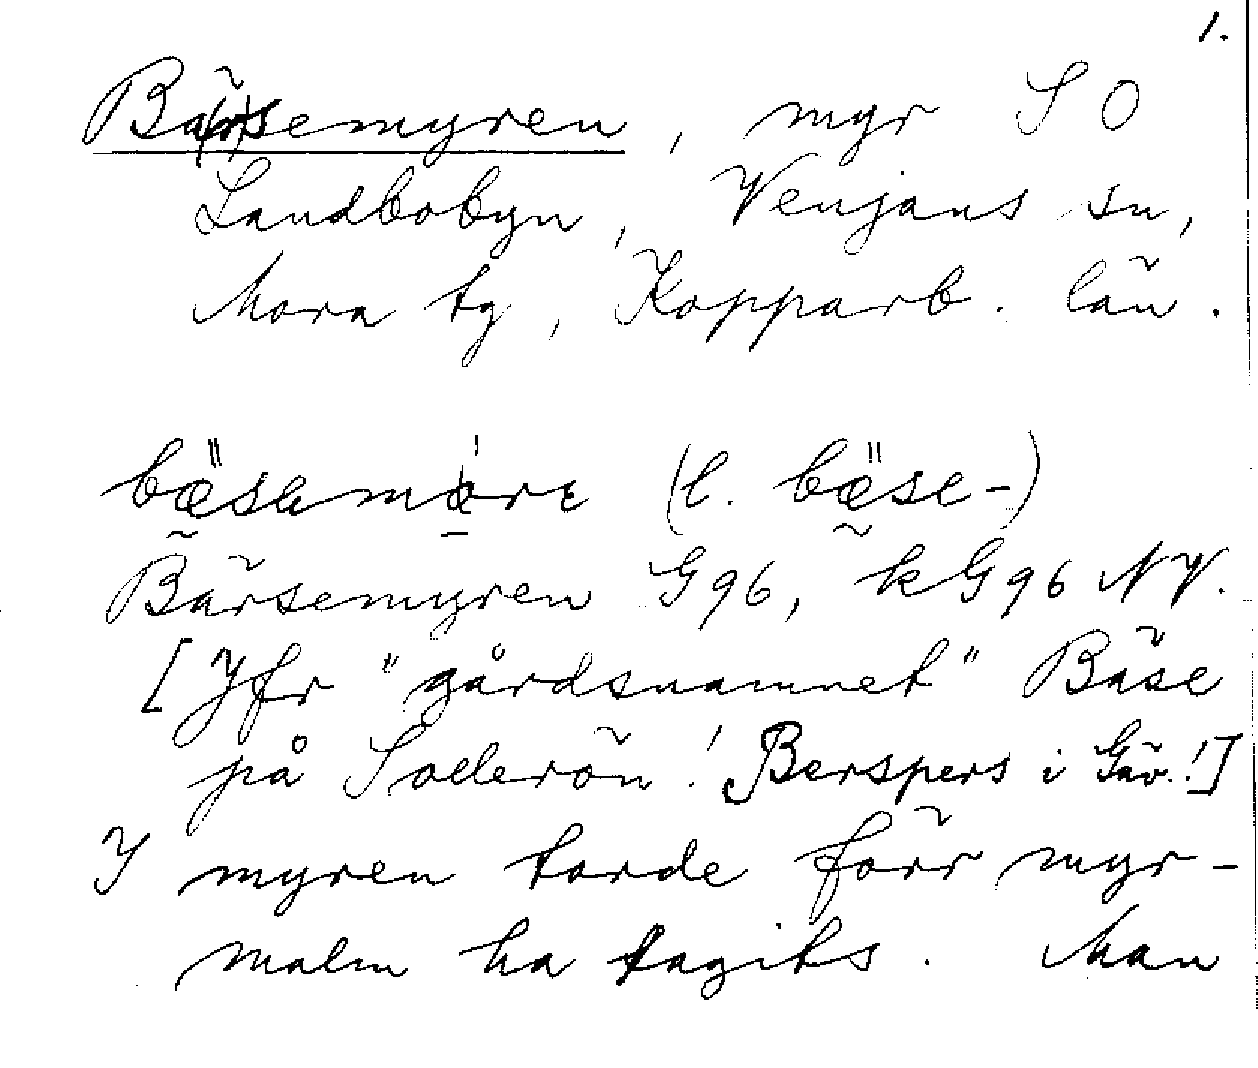 1.
Bä(r)semyren, myr S O
Landbobyn, Venjans sn,
Mora tg, Kopparb. län.
(l. bæ̎se-)
Bärsemyren G96, kG96 NV.
[Jfr "gårdsnamnet" Bäse
på Sollerön! Berspers i Gäv.!]
I myren torde förr myr-
malm ha tagits. Man